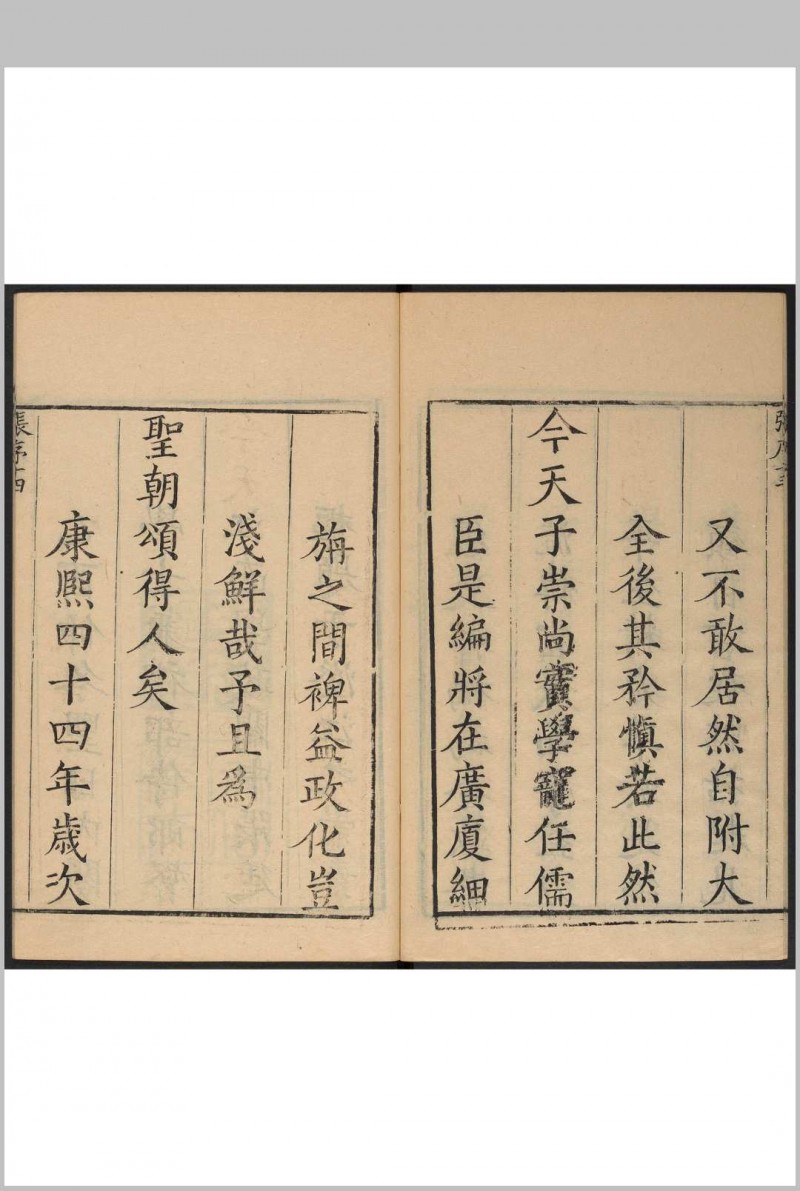 又不敢居然自附大
全後其矜慎若此然
今天子崇尚實學寵任儒
臣是編將在廣廈細
旃之間裨益政化豈
淺鮮哉予且為
聖朝頌得人矣
康熙四十四年歲次
張序十四